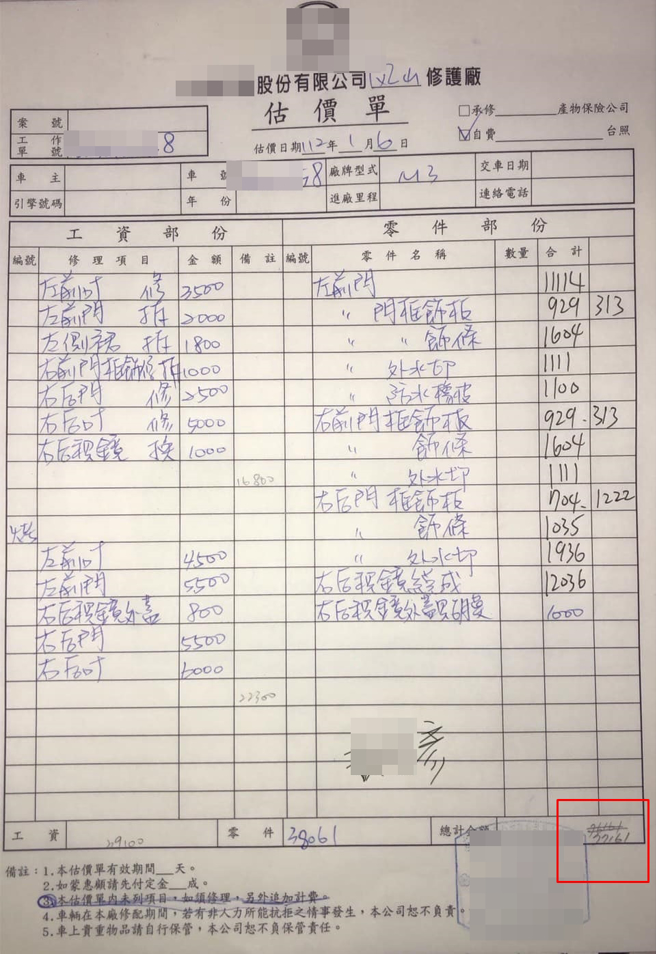 股份有限公司 修護廠
估價單
承修 產物保險公司
自費 台照
案號
工作單號 8
估價日期112年1月6日
車主 車號 8 廠牌型式 M3 交車日期
引擎號碼 年份 進廠里程 連絡電話
工資部份 零件部份
編號 修理項目 金額 備註 編號 零件名稱 數量 合計
左前叶 修 3500 左前門 11114
左前門 拆 2000 〃 門框飾板 929 313
左側裙 拆 1800 〃 〃 飾條 1604
右前門框飾條拆 1000 〃 外水切 1111
右后門 修 2500 〃 防水橡皮 1100
右后叶 修 5000 右前門框飾板 929.313
右后視鏡 換 1000 〃 飾條 1604
16800 〃 外水切 1111
右后門框飾板 704. 1222
烤 〃 飾條 1035
左前叶 4500 〃 外水切 1936
左前門 5500 右后視鏡總成 12036
右后視鏡外蓋 800 右后視鏡外蓋 1000
右后門 5500
右后叶 6000
22300
彥
工資 39100 零件 38061 總計金額 77161
備註:1.本估價單有效期間__天。
2.如蒙惠顧請先付定金__成。
3.本估價單內未列項目,如須修理,另外追加計費。
4.車輛在本廠修配期間,若有非人力所能抗拒之情事發生,本公司恕不負責。
5.車上貴重物品請自行保管,本公司恕不負保管責任。